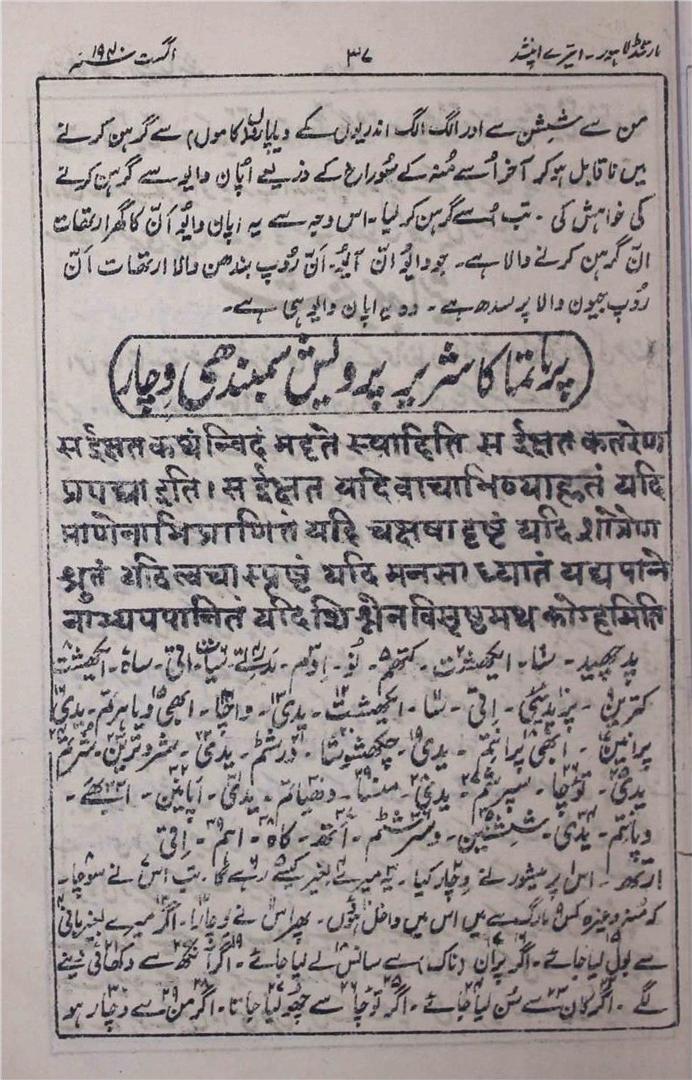 مارتنڈ لاہور ۔ ایترے اپنشد ۳۷ اگست ۱۹۴۰
من سے شِشن سے اور الگ الگ اندریوں کے دیاپاروں (کاموں) سے گرہن کرنے
میں ناقابل ہو کر آخر اُسے مُنہ کے سُوراخ کے ذریعے اَپان وایو سے گرہن کرنے
کی خواہش کی ۔ تب اُسے گرہن کر لیا ۔ اس وجہ سے یہ اپان وایُو اَنّ کا گھر ارتھات
انّ گرہن کرنے والا ہے ۔ جو وایُو انّ آیُو ۔ اَنّ رُوپ بندھن والا ارتھات اَنّ
رُوپ جیون والا پرسدھ ہے ۔ وہ یہ اپان وایو ہی ہے ۔
پرماتما کا شریر پرویش سمبندھی وچار
स ईक्षत कथं न्विदं मदृते स्यादिति स ईक्षत कतरेण
प्रपद्या इति। स ईक्षत यदि वाचाभिव्याहृतं यदि
प्राणेनाभिप्राणितं यदि चक्षषा दृष्टं यदि श्रोत्रेण
श्रुतं यदि त्वचा स्पृष्टं यदि मनसा ध्यातं यद्यपाने
नाभ्यपपानितं यदि शिश्नेन विसृष्टमथ कोऽहमिति
پدچھید ۔ سَا ۔ ایکھشت ۔ کتھم ۔ نُو ۔ اِدم ۔ مدرتے ۔ سیات ۔ اتی ۔ ساہ ۔ ایکھشت
کترین ۔ پرپدیئی ۔ اِتی ۔ سَا ۔ ایکھشت ۔ یدی ۔ واچا ۔ ابھی ویاہرتم ۔ یدی
پرانین ۔ ابھی پرانتم ۔ یدی ۔ چکھشوشا ۔ درشٹم ۔ یدی ۔ شروترین ۔ شرتم
یدی ۔ توچا ۔ سپرشٹم ۔ یدی ۔ منسا ۔ دھیاتم ۔ یدی ۔ اپانین ۔ ابھے ۔
وپانتم ۔ یدی ۔ ششنین ۔ وسرشٹم ۔ اتھ ۔ کاہ ۔ اہم ۔ اتی
ارتھ ۔ اس پرمیشور نے وچار کیا ۔ یہ میرے بغیر کیسے رہے گا ۔ تب اس نے سوچا ۔
کہ مُنہ وغیرہ کس مارگ سے میں اس میں داخل ہوں ۔ پھر اس نے وچارا ۔ اگر میرے بغیر بانی
سے بول لیا جائے ۔ اگر پران (ناک) سے سانس لے لیا جائے ۔ اگر آنکھ سے دکھائی دینے
لگے ۔ اگر کان سے سُن لیا جائے ۔ اگر توچا سے چھو لیا جاتا ۔ اگر من سے وچار ہو